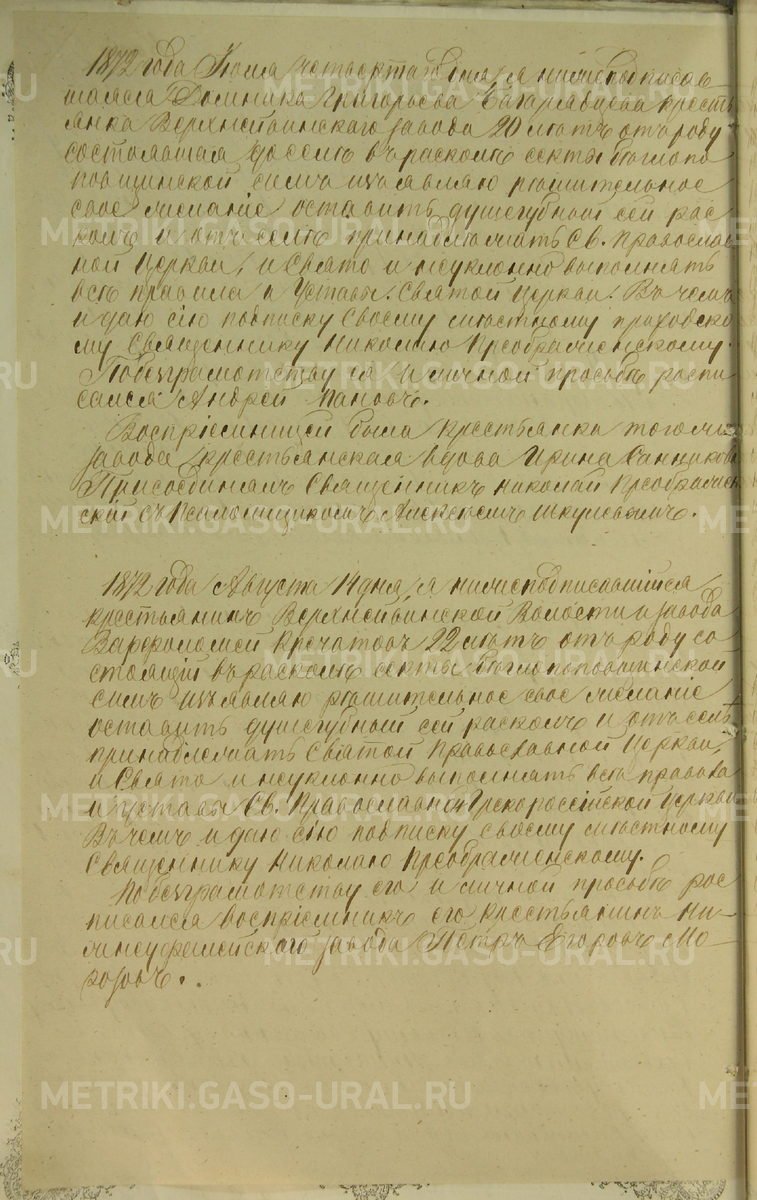 1872 года Июля четвертаго дня, я нижеподписав
шаяся Домника Григорьева крестъ
янка Верхнейвинскаго завода 20 лѣтъ отъ роду
состоявшая до селѣ въ расколѣ секты бѣглопо
повщинской симъ изъявляю рѣшительное
свое желаніе оставить душегубный сей рас
колъ и отъ селѣ принадлежать Св. Православ
ной Церкви, и свято и неуклонно выполнять
всѣ правила и Уставы Святой Церкви. Въ чемъ
и даю сію подписку своему мѣстному приходско
му Священнику Николаю Преображенскому.
По безграмотству ея и личной прозьбѣ роспи
сался Андрей Пановъ.
Воспріемницей была крестьянка того же
завода крестьянская вдова Ирина Санникова
Присоединялъ Священникъ Николай Преображен
скій съ Псаломщикомъ Алексѣемъ Шкулевымъ.
1872 года Августа 14 дня, я нижеподписавшійся
крестьянинъ Верхнейвинской Волости и завода
Варфоломей 22 лѣтъ отъ роду со
стоящій въ расколѣ секты бѣглопоповщинской
симъ изъявляю рѣшительное свое желаніе
оставить душегубный сей расколъ и отъ селѣ
принадлежать Святой Православной Церкви,
и Свято и неуклонно выполнять всѣ правила
и уставы Св. Православной Грекороссійской Церкви
Въ чемъ и даю сію подписку своему мѣстному
Священнику Николаю Преображенскому.
По безграмотству его и личной прозьбѣ рос
писался воспріемникъ его крестьянинъ Ни
жнеуфалейскаго завода Петръ Егоровъ Мо
розовъ.
METRIKI.GASO-URAL.RU